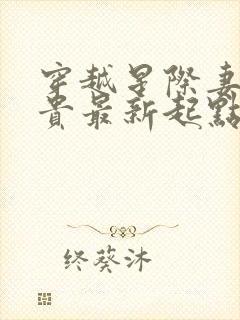 穿越星際妻
貴最新起點
终葵沐